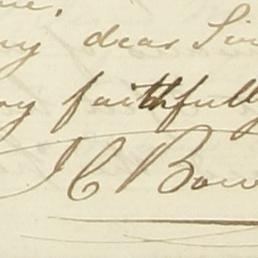 dear Sir
faithfully
J C Bow